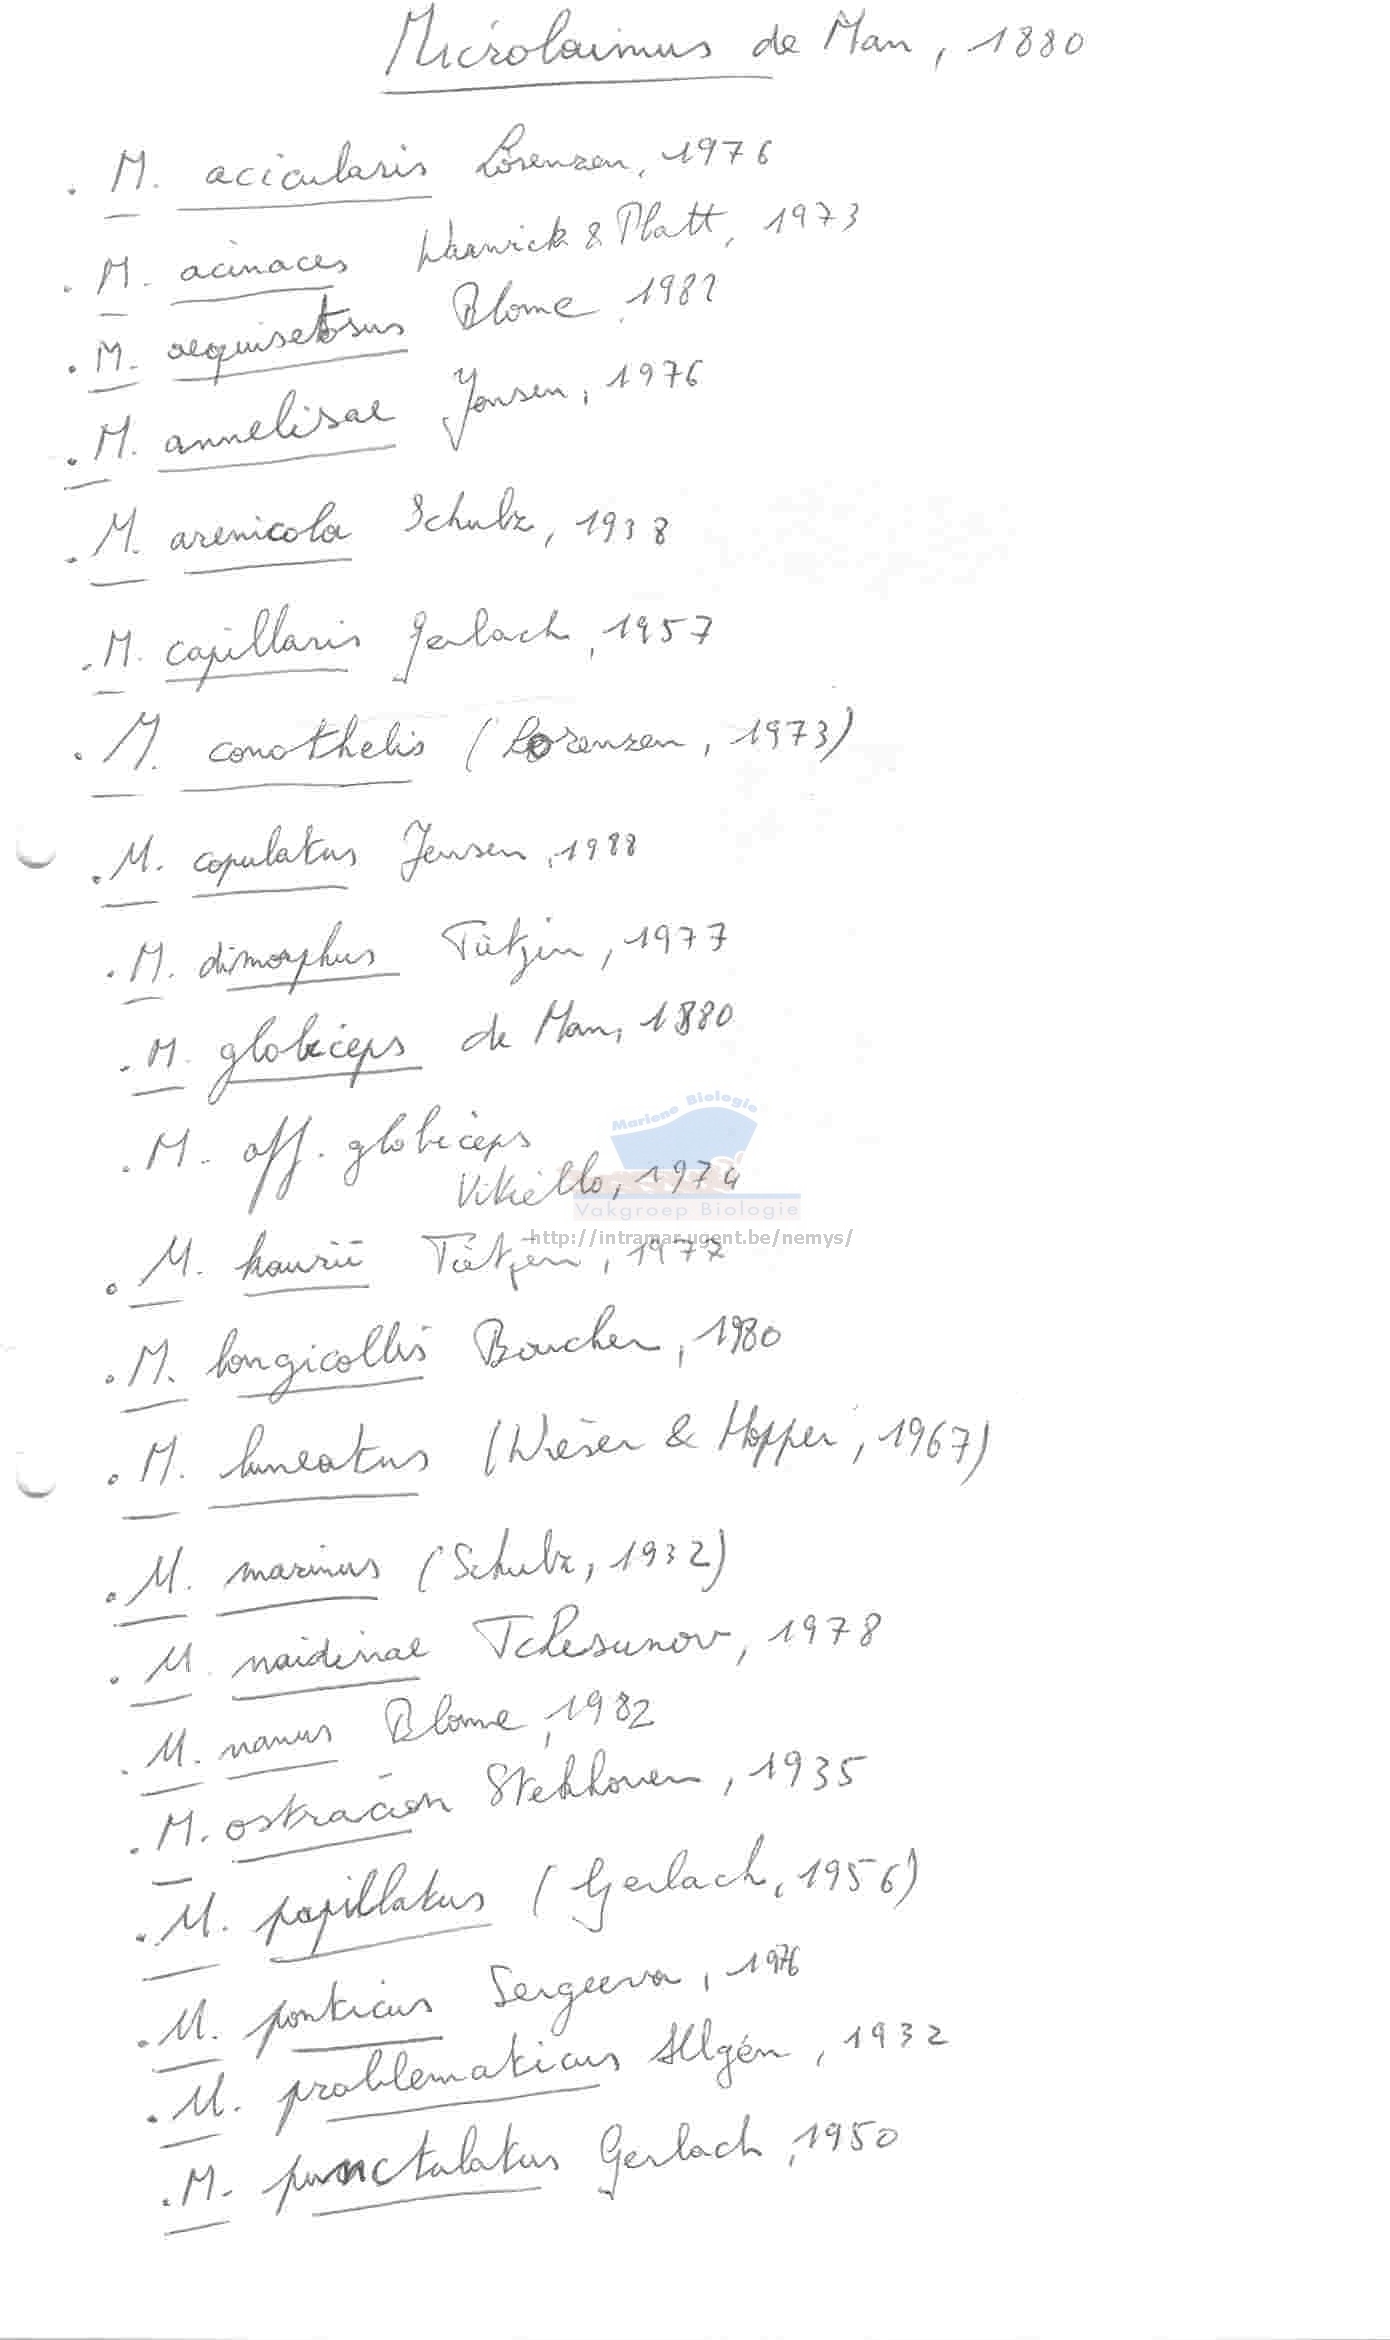 Microlaimus de Man, 1880
. M. acicularis Lorenzen, 1976
. M. acinaces Warwick & Platt, 1973
. M. aequisetosus Blome, 1982
. M. annelisae Jensen, 1976
. M. arenicola Schulz, 1938
. M. capillaris Gerlach, 1957
. M. conothelis (Lorenzen, 1973)
. M. copulatus Jensen, 1988
. M. dimorphus Tietjen, 1977
. M. globiceps de Man, 1880
. M. aff. globiceps
Vitiello, 1974
Mariene Biologie
Vakgroep Biologie
http://intramar.ugent.be/nemys/
. M. kaurii Tietjen, 1977
. M. longicollis Boucher, 1980
. M. lunatus (Wieser & Hopper, 1967)
. M. marinus (Schulz, 1932)
. M. naidinae Tchesunov, 1978
. M. nanus Blome, 1982
. M. ostracion Stekhoven, 1935
. M. papillatus (Gerlach, 1956)
. M. ponticus Sergeeva, 1976
. M. problematicus Allgén, 1932
. M. punctulatus Gerlach, 1950